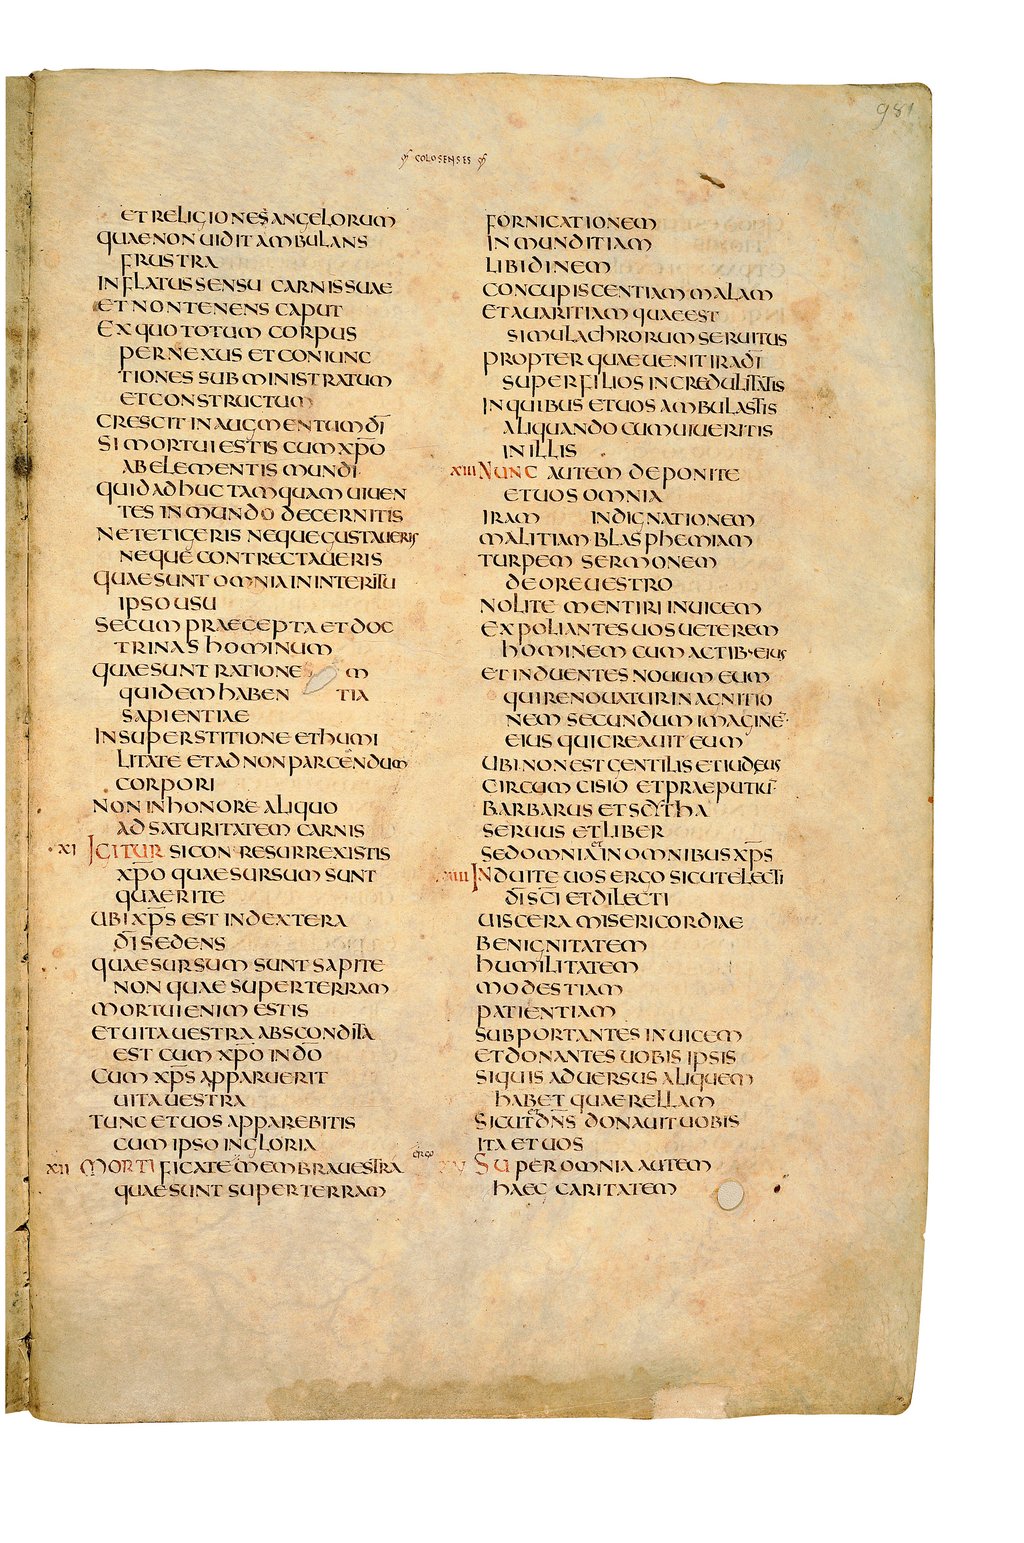 981
COLOSENSES
ET RELIGIONES ANGELORUM
QUAE NON UIDIT AMBULANS
FRUSTRA
INFLATUS SENSU CARNIS SUAE
ET NON TENENS CAPUT
EX QUO TOTUM CORPUS
PER NEXUS ET CONIUNC
TIONES SUBMINISTRATUM
ET CONSTRUCTUM
CRESCIT IN AUGMENTUM DI
SI MORTUI ESTIS CUM XPO
AB ELEMENTIS MUNDI
QUID ADHUC TAMQUAM UIUEN
TES IN MUNDO DECERNITIS
NE TETIGERIS NEQUE GUSTAUERIS
NEQUE CONTRECTAUERIS
QUAE SUNT OMNIA IN INTERITU
IPSO USU
SECUM PRAECEPTA ET DOC
TRINAS HOMINUM
QUAE SUNT RATIONE M
QUIDEM HABEN TIA
SAPIENTIAE
IN SUPERSTITIONE ET HUMI
LITATE ET AD NON PARCENDUM
CORPORI
NON IN HONORE ALIQUO
AD SATURITATEM CARNIS
XI IGITUR SI CON RESURREXISTIS
XPO QUAE SURSUM SUNT
QUAERITE
UBI XPS EST IN DEXTERA
DI SEDENS
QUAE SURSUM SUNT SAPITE
NON QUAE SUPER TERRAM
MORTUI ENIM ESTIS
ET UITA UESTRA ABSCONDITA
EST CUM XPO IN DO
CUM XPS APPARUERIT
UITA UESTRA
TUNC ET UOS APPAREBITIS
CUM IPSO IN GLORIA
ergo
XII MORTIFICATE MEMBRA UESTRA
QUAE SUNT SUPER TERRAM
FORNICATIONEM
INMUNDITIAM
LIBIDINEM
CONCUPISCENTIAM MALAM
ET AUARITIAM QUAE EST
SIMULACHRORUM SERUITUS
PROPTER QUAE UENIT IRA DI
SUPER FILIOS INCREDULITATIS
IN QUIBUS ET UOS AMBULASTIS
ALIQUANDO CUM UIUERITIS
IN ILLIS
XIII NUNC AUTEM DEPONITE
ET UOS OMNIA
IRAM INDIGNATIONEM
MALITIAM BLASPHEMIAM
TURPEM SERMONEM
DE ORE UESTRO
NOLITE MENTIRI INUICEM
EXPOLIANTES UOS UETEREM
HOMINEM CUM ACTIB· EIUS
ET INDUENTES NOUUM EUM
QUI RENOUATUR IN AGNITIO
NEM SECUNDUM IMAGINE
EIUS QUI CREAUIT EUM
UBI NON EST GENTILIS ET IUDEUS
CIRCUMCISIO ET PRAEPUTIU
BARBARUS ET SCYTHA
SERUUS ET LIBER
SED OMNIA et IN OMNIBUS XPS
XIIII INDUITE UOS ERGO SICUT ELECTI
DI SCI ET DILECTI
UISCERA MISERICORDIAE
BENIGNITATEM
HUMILITATEM
MODESTIAM
PATIENTIAM
SUBPORTANTES INUICEM
ET DONANTES UOBIS IPSIS
SI QUIS ADUERSUS ALIQUEM
HABET QUAERELLAM
SICUT et DNS DONAUIT UOBIS
ITA ET UOS
XV SUPER OMNIA AUTEM
HAEC CARITATEM